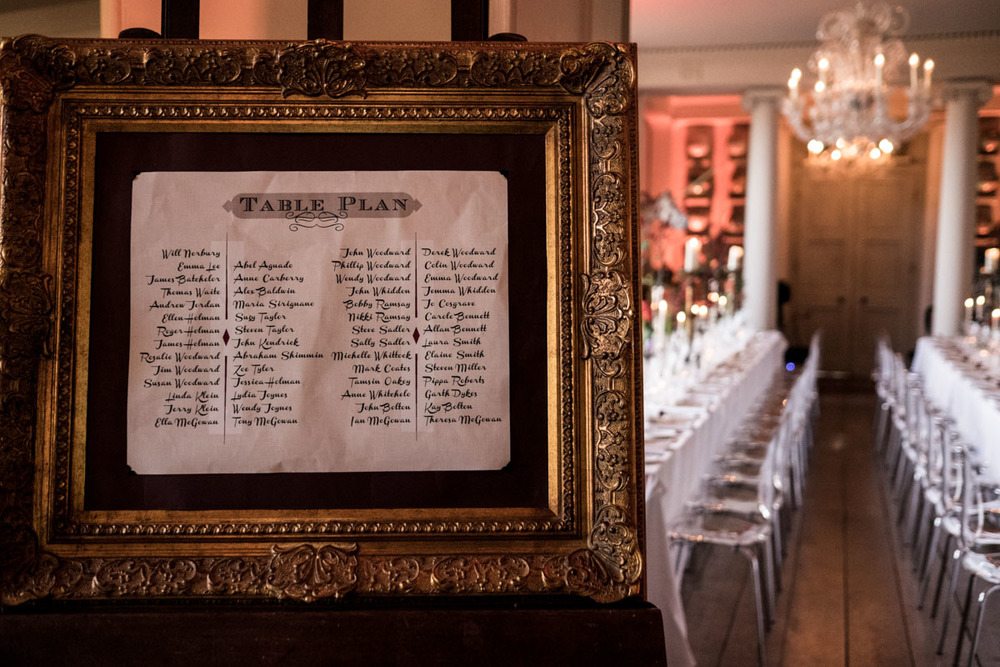 Table Plan
Will Norbury
Emma Lee
James Batchelor
Thomas Waite
Andrew Jordan
Ellen Holman
Roger Holman
James Holman
Rosalie Woodward
Tim Woodward
Susan Woodward
Linda Klein
Jerry Klein
Ella McGowan
Abel Aguado
Anne Carberry
Alex Baldwin
Maria Sirignane
Susy Taylor
Steven Taylor
John Kendrick
Abraham Shimmin
Zoe Tyler
Jessica Holman
Lydia Joynes
Wendy Joynes
Tony McGowan
John Woodward
Phillip Woodward
Wendy Woodward
John Whiddon
Bobby Ramsay
Nikki Ramsay
Steve Sadler
Sally Sadler
Michelle Whittock
Mark Coates
Tamsin Oakey
Anne Whitehole
John Bolton
Ian McGowan
Derek Woodward
Colin Woodward
Emma Woodward
Jemma Whiddon
Jo Cosgrave
Carole Bennett
Allan Bennett
Laura Smith
Elaine Smith
Steven Miller
Pippa Roberts
Garth Dykes
Kay Bolton
Theresa McGowan